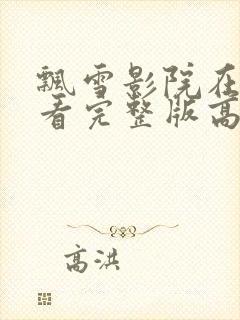 飘雪影院在
看完整版高
高洪